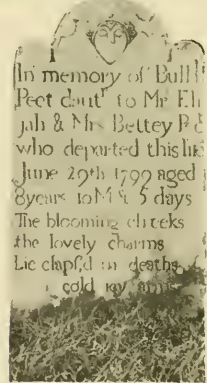 In memory of Bull
Peet daut^r to Mr Eli
jah & Mrs Bettey Pe
who departed this life
June 29th 1799 aged
8 years 10 M & 5 days
The blooming cheeks
the lovely charms
Lie clasp,d in deaths
cold icy arms